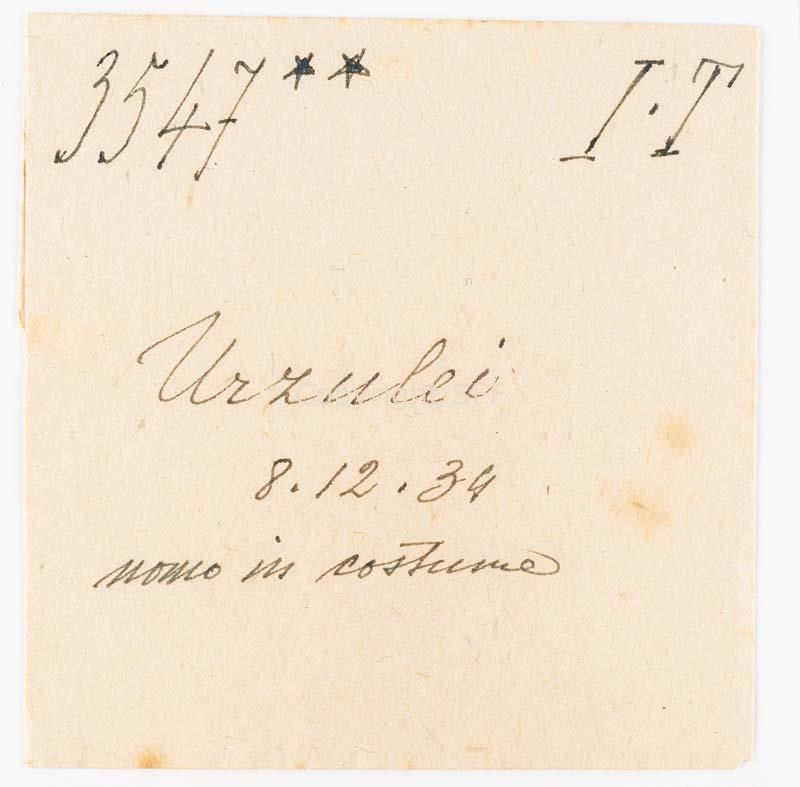 3547** I.T
Urzulei
8.12.34
uomo in costume